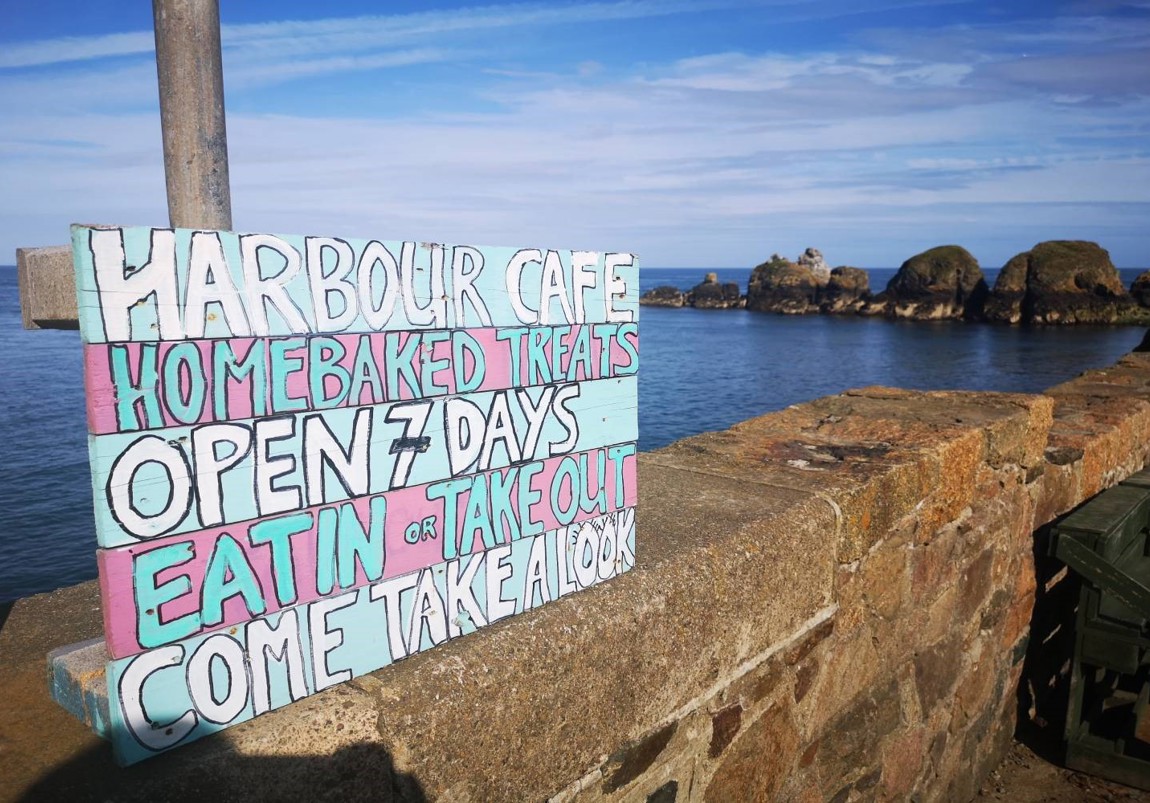 HARBOUR CAFE
HOMEBAKED TREATS
OPEN 7 DAYS
EAT IN OR TAKE OUT
COME TAKE A LOOK